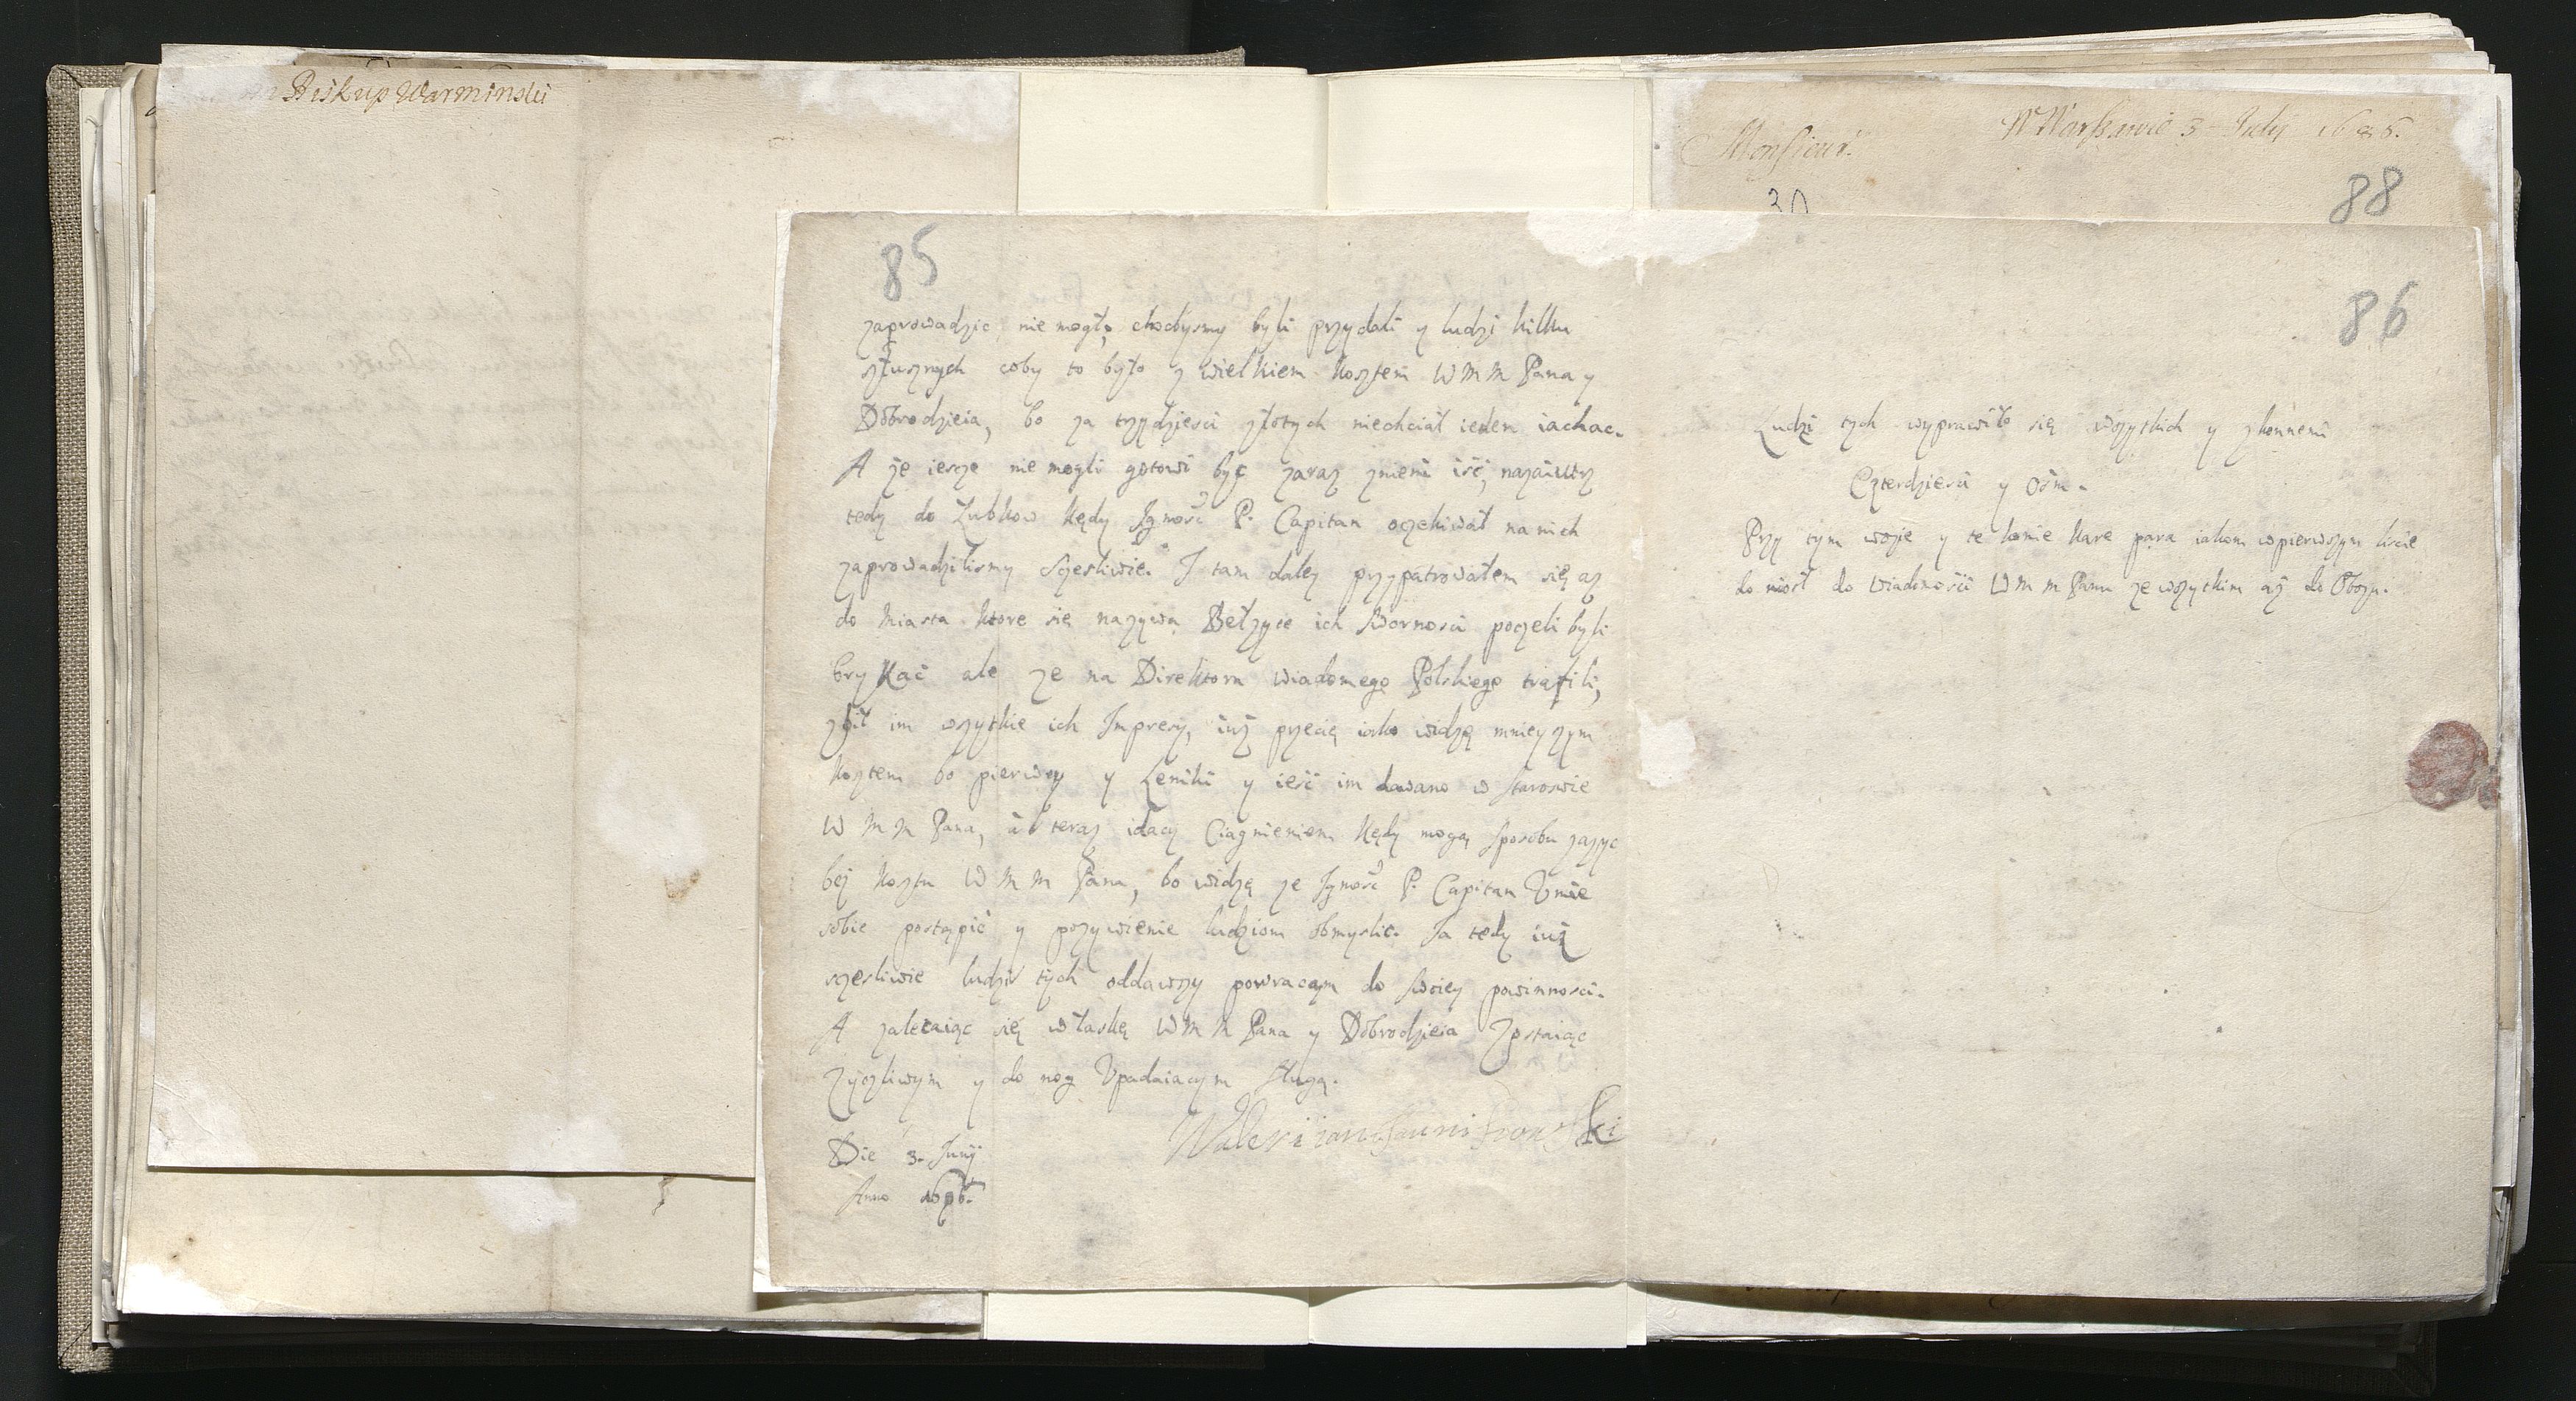 Biskup Warminski
Monsieur.
W Warszawie 3 July 1686.
88
85
zaprowadzic nie mogł, chocbysmy byli przydali y ludzi kilku
słusznych coby to było z wielkiem Kosztem W M M Pana y
Dobrodzieia, bo za trzydziesci złotych niechciał ieden iachac.
A że iescze nie mogli gotowi być zaraz zniemi iść, nazaiutrz
tedy do Lubkow kędy Jgmość P. Capitan oczekiwał na nich
zaprowadzilismy sczesliwie. I tam daley przypatrowałem się az
do Miasta ktore się nazywa Bełzyce ich sworności poczeli byli
brykać ale ze na Direktora wiadomego Polskiego trafili,
zbił im wszytkie ich Impresy, iuż przecię iako widzę mnieyszym
kosztem bo pierwey y Leniki y ieść im dawano w starostwie
W M M Pana, a teraz idący Ciągnieniem kędy mogą sposobu zazyc
bez kosztu W M M Pana, bo widzę ze Jgmość P. Capitan Umie
sobie postąpić y pozywienie ludziom obmyslic. Ja tedy iuż
sczesliwie ludzi tych oddawszy powracam do swoiey powinności.
A zalecaiąc się w łaskę W M M Pana y Dobrodzieia Zostaiąc
Zyczliwym y do nog Upadaiacym sługą.
Die 3. Junij
Anno
86
Ludzi tych wyprawiło się wszytkich y zkonnemi
Czterdziesci y Ośm.
Przy tym wozie y te konie kare para iakom wpierwszym liscie
do niosł do wiadomości W M M Panu ze wszytkim aż do Obozu.